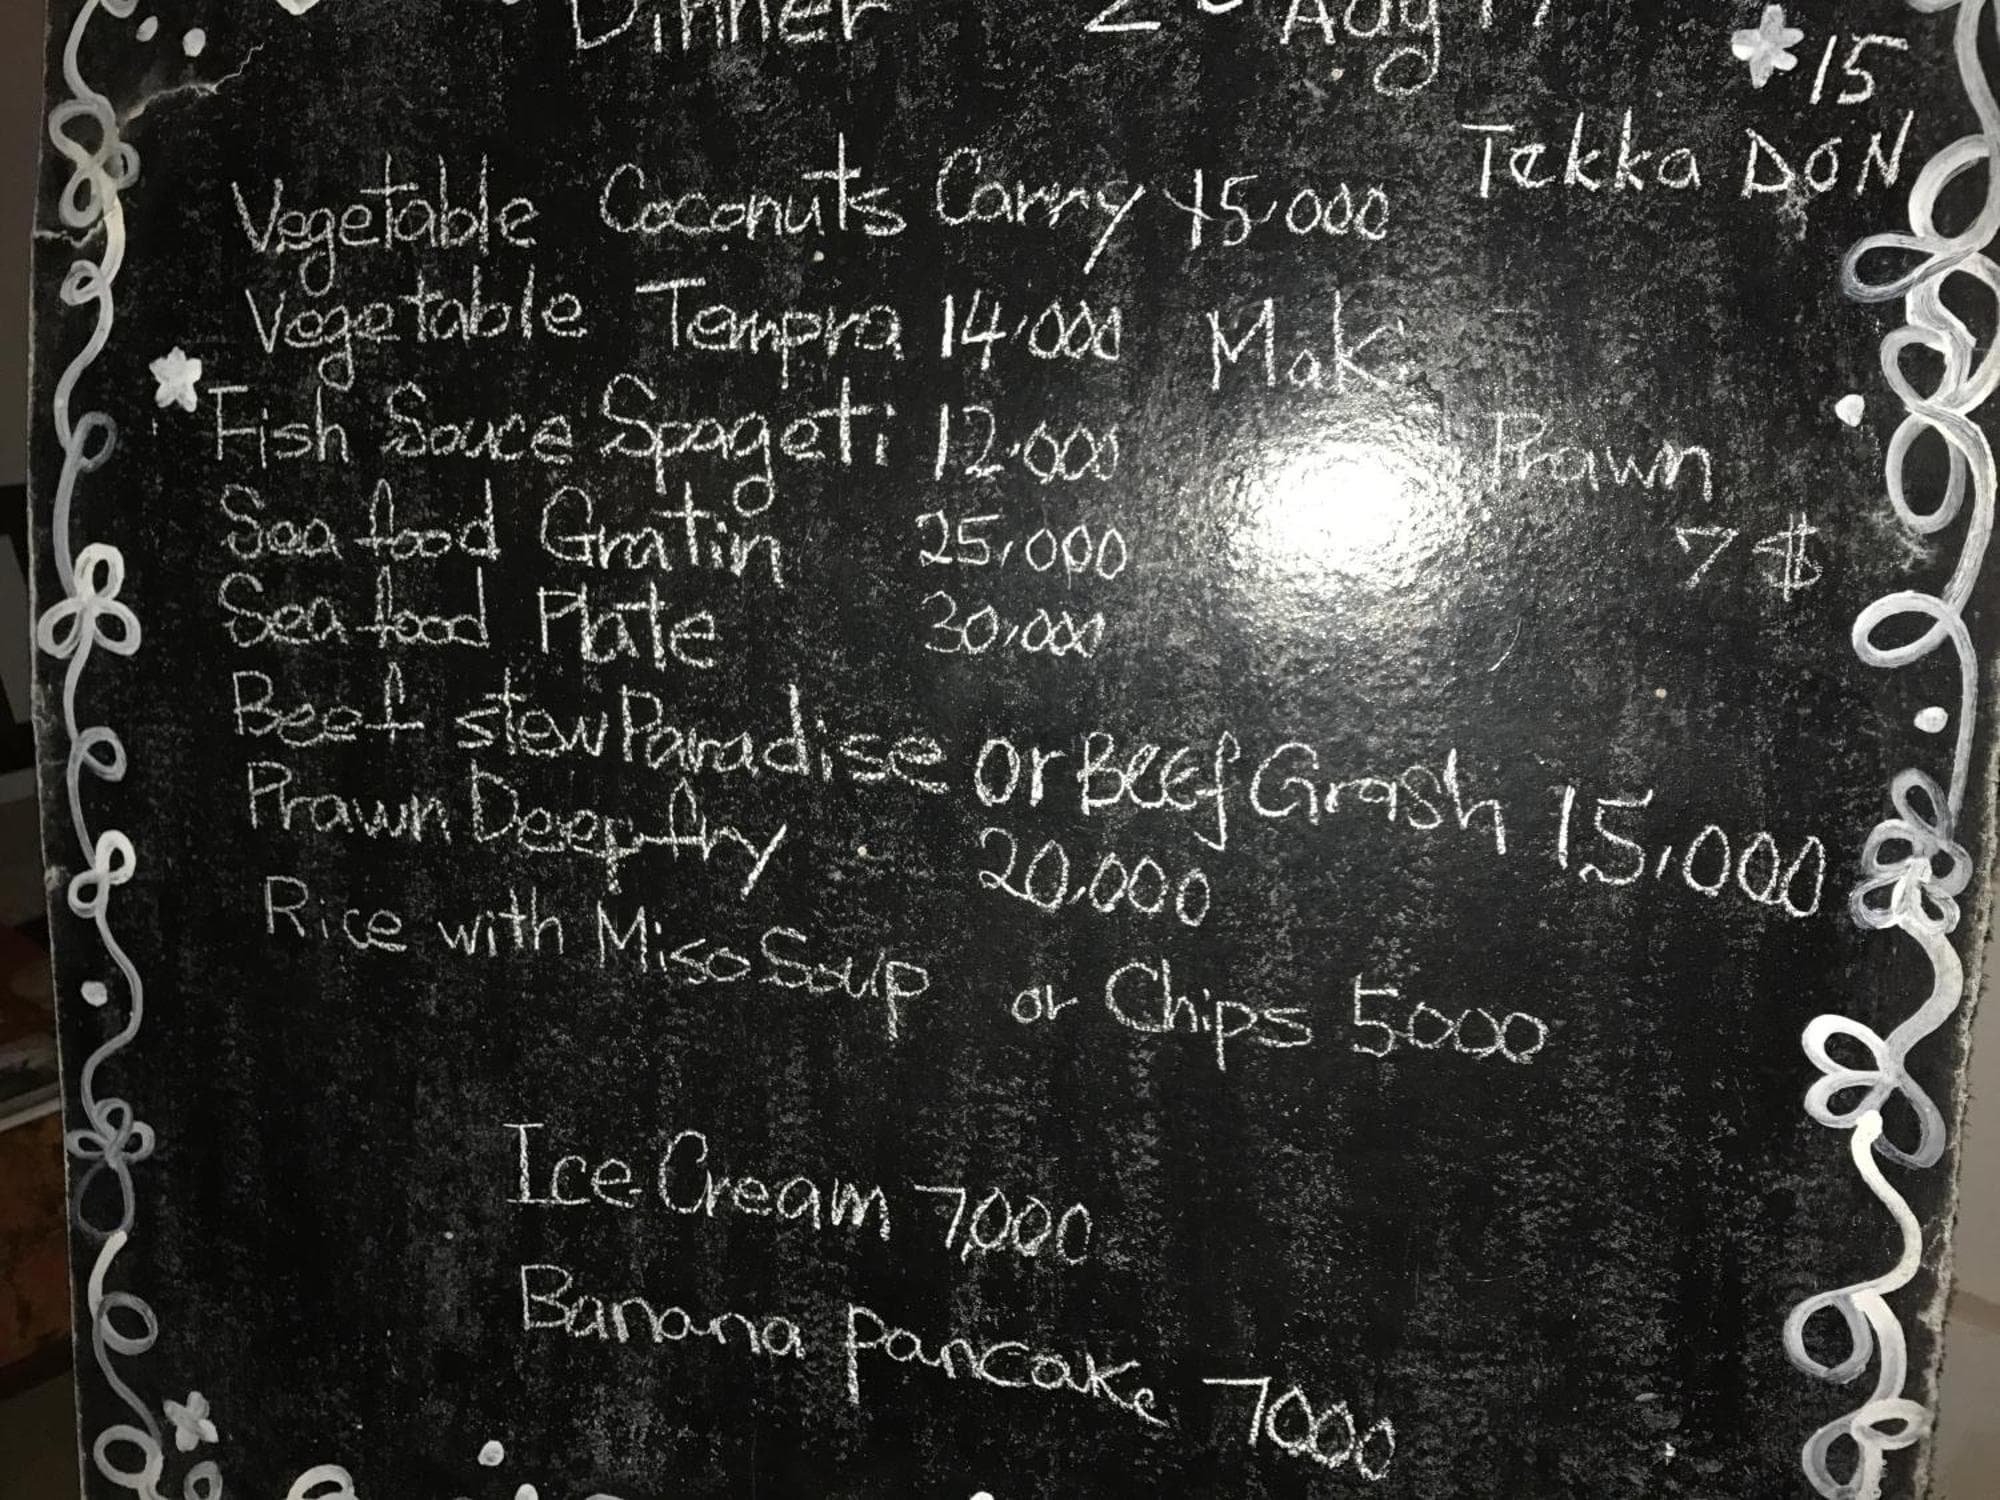 Dinner 2 Aug 17
15
Tekka DON
Vegetable Coconuts Carry 15,000
Vegetable Tempra 14,000 Maki
Fish Sauce Spageti 12,000 Prawn
7 $
Sea food Gratin 25,000
Sea food Plate 30,000
Beef stew Paradise or BEEf Grash 15,000
Prawn Deep fry 20,000
Rice with Miso Soup or Chips 5000
Ice Cream 7,000
Banana pancake 7000